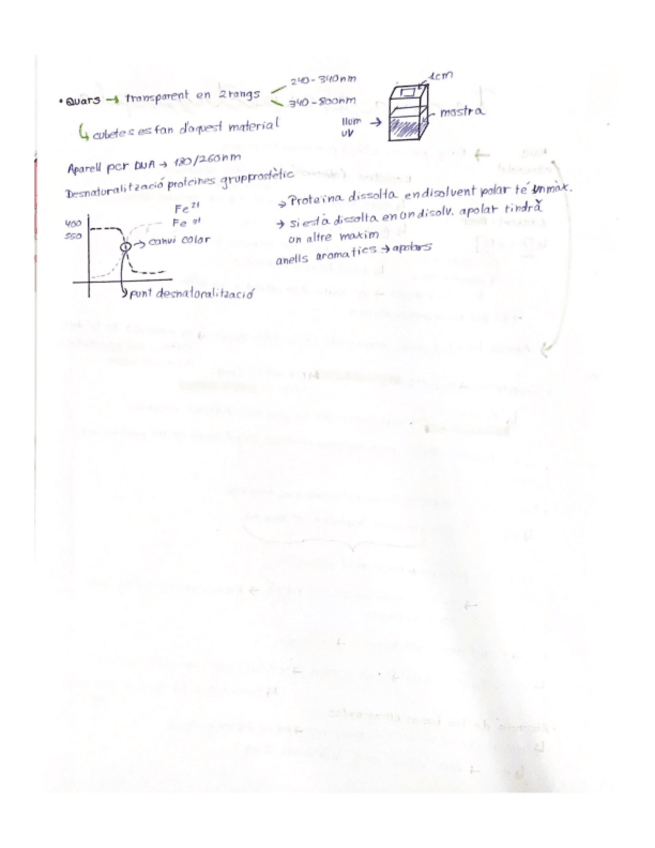 • Quars → transparent en 2 rangs
240-340nm
340-800nm
↳ cubetes es fan d'aquest material
1cm
llum UV →
mostra
Aparell per DUA → 180/260nm
Desnaturalització proteïnes grup prostètic
400
550
Fe 2+
Fe
→ canvi color
punt desnaturalització
→ Proteina dissolta en disolvent polar té un màx.
→ si està dissolta en un disolv. apolar tindrà
un altre maxim
anells aromatics → apolars